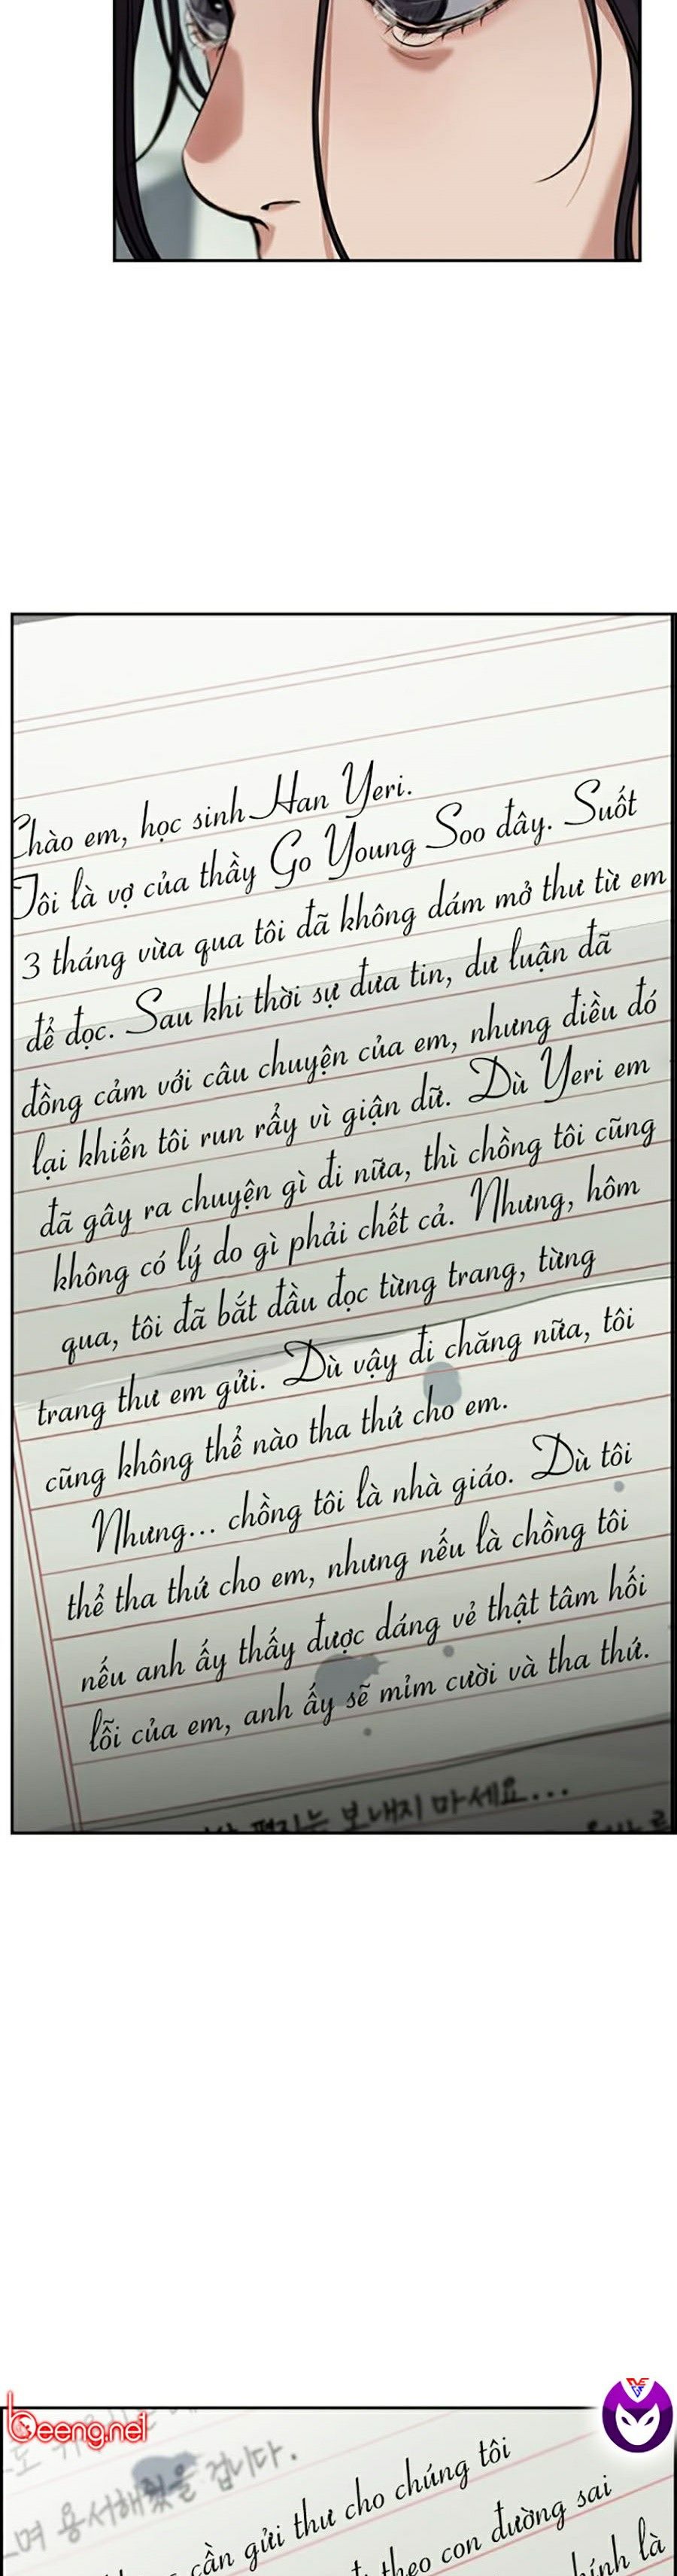 Chào em, học sinh Han Yeri.
Tôi là vợ của thầy Go Young Soo đây. Suốt
3 tháng vừa qua tôi đã không dám mở thư từ em
để đọc. Sau khi thời sự đưa tin, dư luận đã
đồng cảm với câu chuyện của em, nhưng điều đó
lại khiến tôi run rẩy vì giận dữ. Dù Yeri em
đã gây ra chuyện gì đi nữa, thì chồng tôi cũng
không có lý do gì phải chết cả. Nhưng, hôm
qua, tôi đã bắt đầu đọc từng trang, từng
trang thư em gửi. Dù vậy đi chăng nữa, tôi
cũng không thể nào tha thứ cho em.
Nhưng... chồng tôi là nhà giáo. Dù tôi
thể tha thứ cho em, nhưng nếu là chồng tôi
nếu anh ấy thấy được dáng vẻ thật tâm hối
lỗi của em, anh ấy sẽ mỉm cười và tha thứ.
편지는 보내지 마세요...
beeng.net
며 용서해줬을 겁니다.
cần gửi thư cho chúng tôi
đi theo con đường sai
chính là